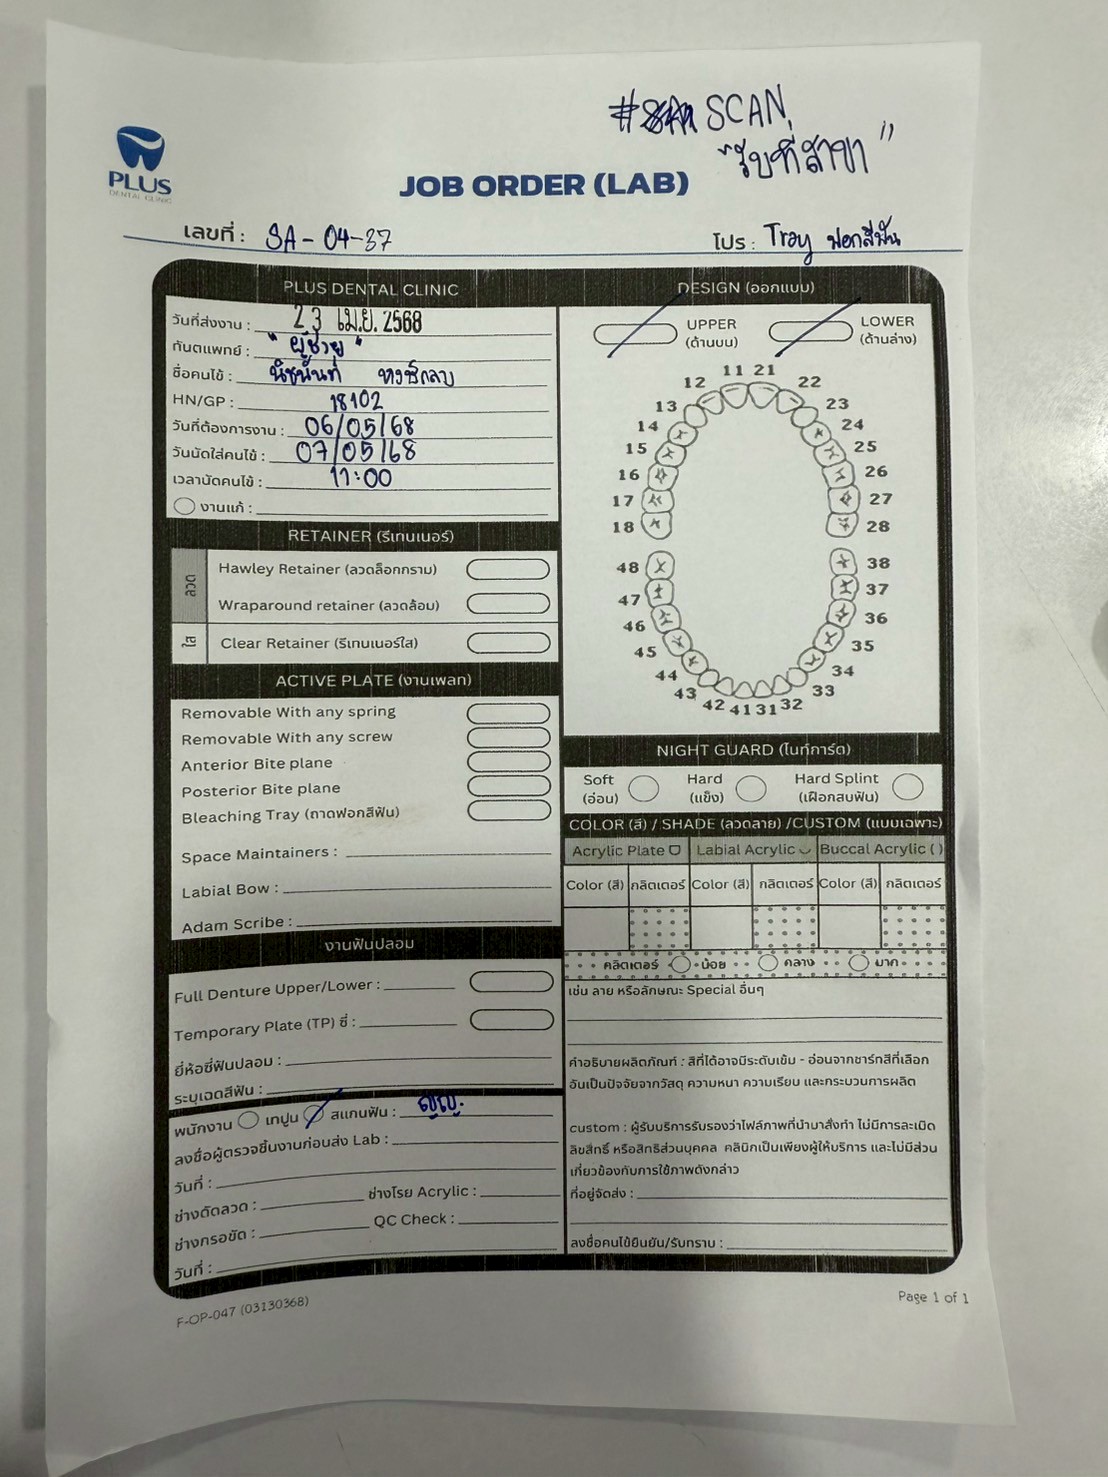 # SCAN
"รับที่สาขา"
PLUS
DENTAL CLINIC
JOB ORDER (LAB)
เลขที่ : SA - 04-37
โปร : Tray ฟอกสีฟัน
PLUS DENTAL CLINIC
วันที่ส่งงาน : 23 เม.ย. 2568
ทันตแพทย์ : "ผู้ช่วย"
ชื่อคนไข้ :
HN/GP : 18102
วันที่ต้องการงาน : 06/05/68
วันนัดใส่คนไข้ : 07/05/68
เวลานัดคนไข้ : 11:00
งานแก้ :
RETAINER (รีเทนเนอร์)
ลวด
Hawley Retainer (ลวดล็อกกราม)
Wraparound retainer (ลวดล้อม)
ใส
Clear Retainer (รีเทนเนอร์ใส)
ACTIVE PLATE (งานเพลท)
Removable With any spring
Removable With any screw
Anterior Bite plane
Posterior Bite plane
Bleaching Tray (ถาดฟอกสีฟัน)
Space Maintainers :
Labial Bow :
Adam Scribe :
งานฟันปลอม
Full Denture Upper/Lower :
Temporary Plate (TP) ซี่ :
ยี่ห้อซี่ฟันปลอม :
ระบุเฉดสีฟัน :
พนักงาน เทปูน สแกนฟัน :
ลงชื่อผู้ตรวจชิ้นงานก่อนส่ง Lab :
วันที่ :
ช่างดัดลวด : ช่างโรย Acrylic :
ช่างกรอขัด : QC Check :
วันที่ :
DESIGN (ออกแบบ)
UPPER
(ด้านบน)
LOWER
(ด้านล่าง)
11 21
12 22
13 23
14 24
15 25
16 26
17 27
18 28
48 38
47 37
46 36
45 35
44 34
43 33
42 41 31 32
NIGHT GUARD (ไนท์การ์ด)
Soft
(อ่อน)
Hard
(แข็ง)
Hard Splint
(เฝือกสบฟัน)
COLOR (สี) / SHADE (ลวดลาย) /CUSTOM (แบบเฉพาะ)
Acrylic Plate Labial Acrylic Buccal Acrylic ( )
Color (สี) กลิตเตอร์ Color (สี) กลิตเตอร์ Color (สี) กลิตเตอร์
คลิตเตอร์ น้อย คลาง มาก
เช่น ลาย หรือลักษณะ Special อื่นๆ
คำอธิบายผลิตภัณฑ์ : สีที่ได้อาจมีระดับเข้ม - อ่อนจากชาร์ทสีที่เลือก
อันเป็นปัจจัยจากวัสดุ ความหนา ความเรียบ และกระบวนการผลิต
custom : ผู้รับบริการรับรองว่าไฟล์ภาพที่นำมาสั่งทำ ไม่มีการละเมิด
ลิขสิทธิ์ หรือสิทธิส่วนบุคคล คลินิกเป็นเพียงผู้ให้บริการ และไม่มีส่วน
เกี่ยวข้องกับการใช้ภาพดังกล่าว
ที่อยู่จัดส่ง :
ลงชื่อคนไข้ยืนยัน/รับทราบ :
F-OP-047 (03130368)
Page 1 of 1